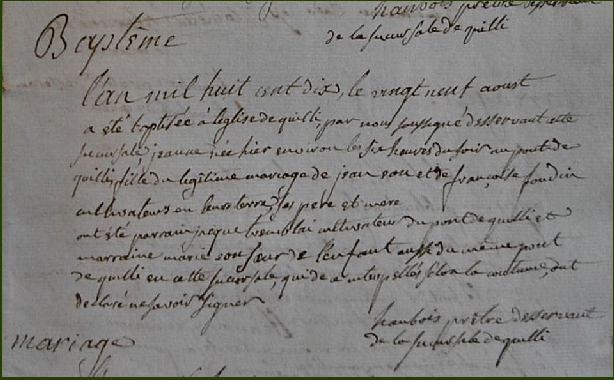 haubois prêtre desservant
de la succursale de quilli
Baptême
l'an mil huit cent dix, le vingt neuf aoust
a été baptisée à l'église de quilli, par nous soussigné desservant cette
succursale jeanne née hier environ les six heures du soir au pont de
quilli, fille du legitime mariage de jean son et de françoise foudin
cultivateurs en leurs terres, ses père et mere
ont été parrain jacque tremblai cultivateur du pont de quilli et
marraine marie son sœur de l'enfant aussi du même pont
de quilli en cette succursale, qui de ce interpellés selon la coutume, ont
declaré ne savoir signer
haubois prêtre desservant
de la succursale de quilli
mariage